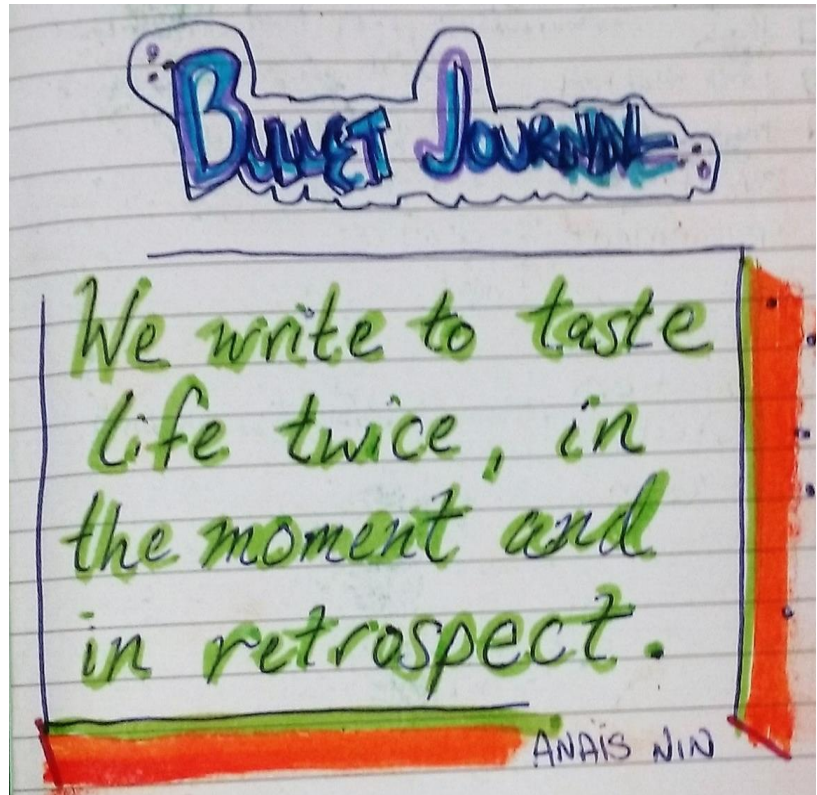 BULLET JOURNAL
We write to taste
life twice, in
the moment and
in retrospect.
ANAÏS NIN